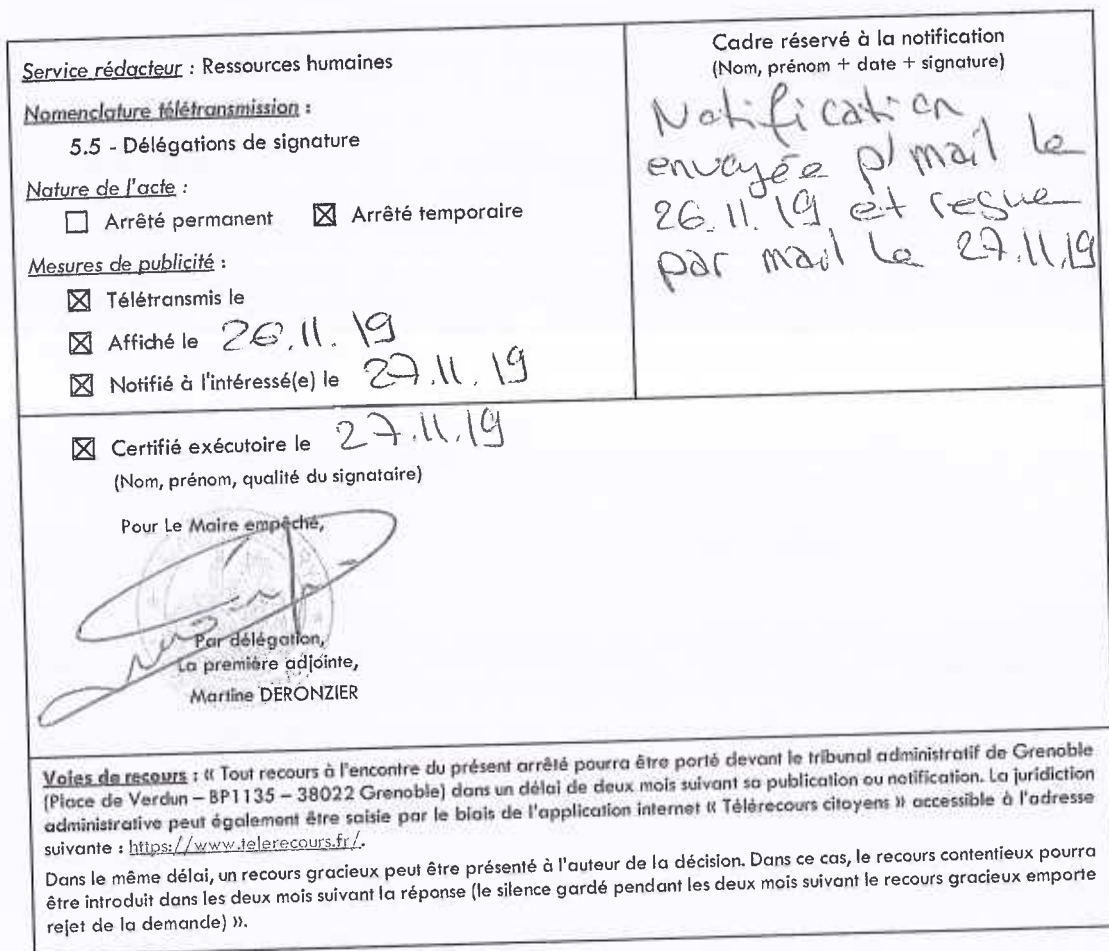 Service rédacteur : Ressources humaines
Nomenclature télétransmission :
5.5 - Délégations de signature
Nature de l'acte :
☐ Arrêté permanent ☒ Arrêté temporaire
Mesures de publicité :
☒ Télétransmis le
☒ Affiché le 26.11.19
☒ Notifié à l'intéressé(e) le 27.11.19
Cadre réservé à la notification
(Nom, prénom + date + signature)
Notification
envoyée p/ mail le
26.11.19 et reçue
par mail le 27.11.19
☒ Certifié exécutoire le 27.11.19
(Nom, prénom, qualité du signataire)
Pour Le Maire empêché,
Par délégation,
La première adjointe,
Martine DERONZIER
Voies de recours : « Tout recours à l'encontre du présent arrêté pourra être porté devant le tribunal administratif de Grenoble
(Place de Verdun – BP1135 – 38022 Grenoble) dans un délai de deux mois suivant sa publication ou notification. La juridiction
administrative peut également être saisie par le biais de l'application internet « Télérecours citoyens » accessible à l'adresse
suivante : https://www.telerecours.fr/.
Dans le même délai, un recours gracieux peut être présenté à l'auteur de la décision. Dans ce cas, le recours contentieux pourra
être introduit dans les deux mois suivant la réponse (le silence gardé pendant les deux mois suivant le recours gracieux emporte
rejet de la demande) ».